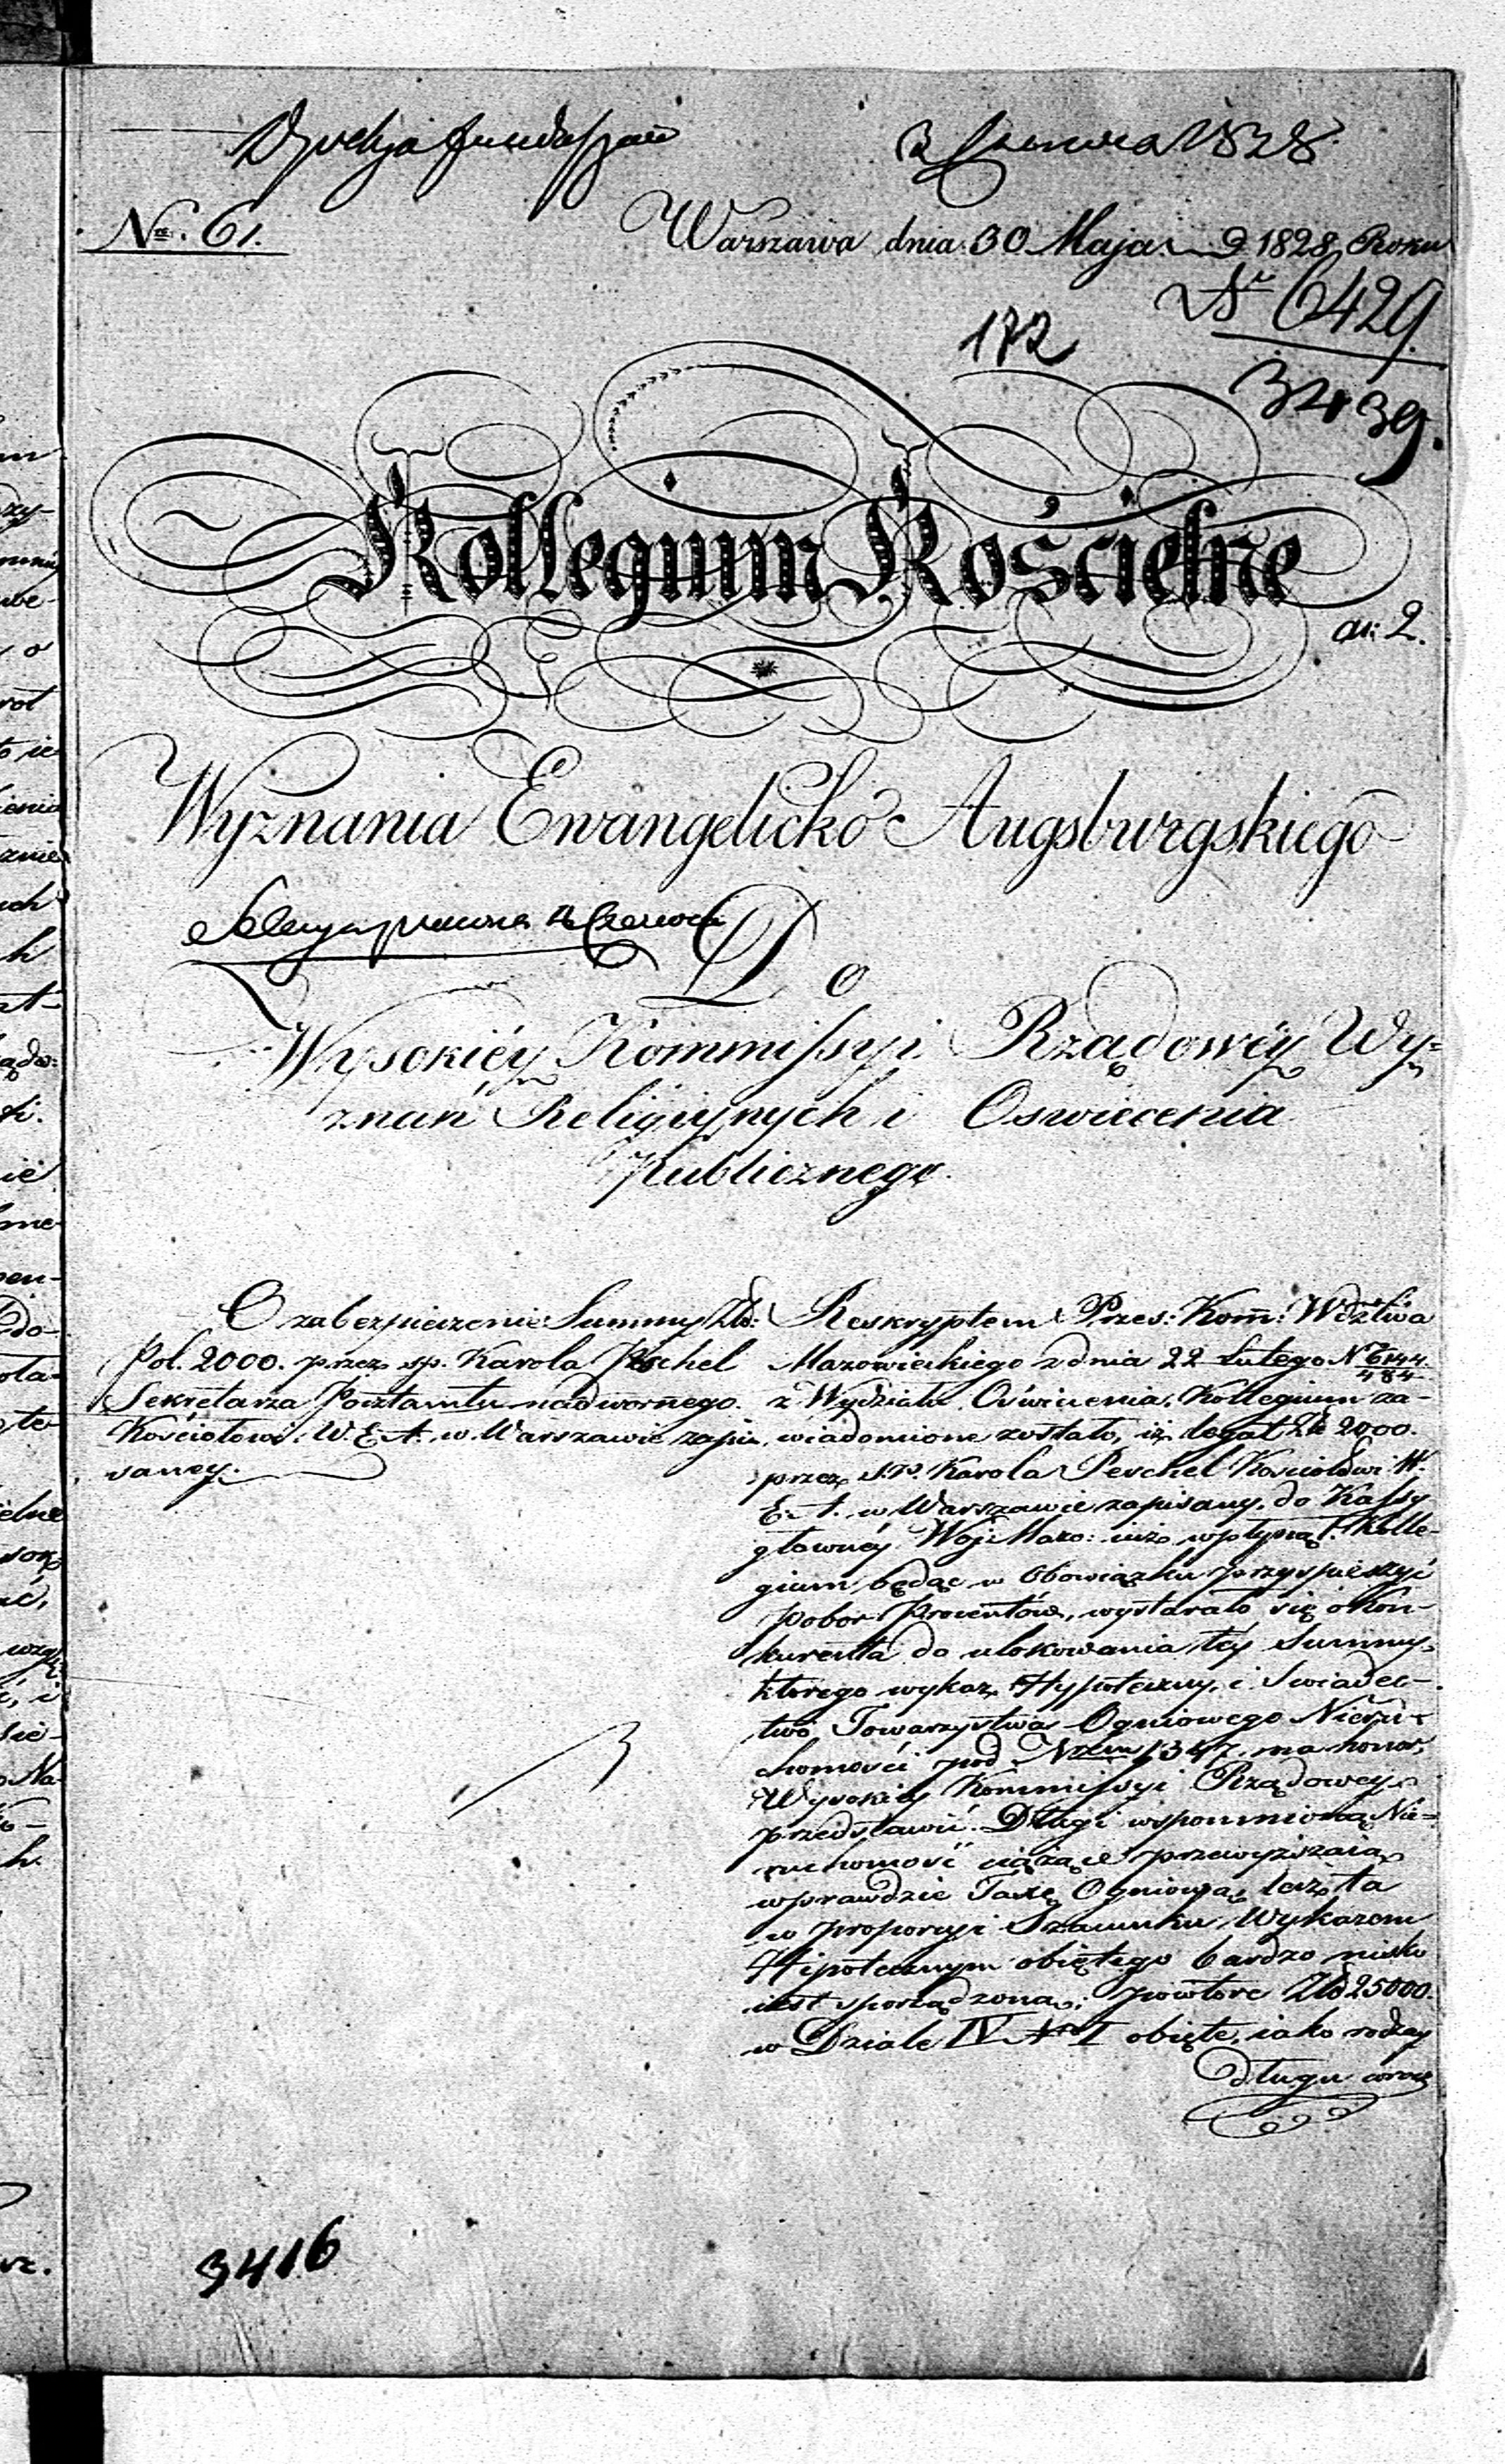 Nro. 61.
Warszawa dnia 30 Maja 1828 Roku
Nr 6429.
182
3439.
Kollegium Kościelne
an: 2.
Wyznania Ewangelicko Augsburgskiego
4 Czerwca
Do
Wysokiéy Kommissyi Rządowéy Wy=
znań Religiynych i Oswiecenia
Publicznego.
O zabezpieczenie Summy Złd:
Pol. 2000. przez sp. Karola Peschel
Sekretarza Pocztamtu nadwornego
Kościołowi W. E. A. w Warszawie zapi
saney.
Reskryptem Prez: Kom: Wdztwa
Mazowieckiego z dnia 22 Lutego N 6144/484
z Wydziału Oświecenia, Kollegium za-
wiadomione zostało, iż legat Zł 2000.
przez S.P. Karola Peschel Kościołowi W.
E. A. w Warszawie zapisany, do Kassy
główney Woj: Mazo: iuż wpłynął. Kolle-
gium będąc w Obowiązku przyspieszyć
pobor Procentów, wystarało się o Kon-
kurenta do ulokowania téy Summy,
ktorego wykaz Hypoteczny, i Swiadec-
two Towarzystwa Ogniowego Nieru-
chomości pod Nrem 1347. ma honor,
Wysokiey Kommissyi Rządowey
przedstawić. Długi wspomnioną Nie=
ruchomość ciążące przewyższaią
wprawdzie Taxę Ogniową, lecz ta
w proporcyi Szacunku Wykazem
Hipotecznym obiętego bardzo nisko
iest sporządzona; powtóre Złd 25000.
w Dziale IV Nro I obięte, iako rodzay
długu
3416